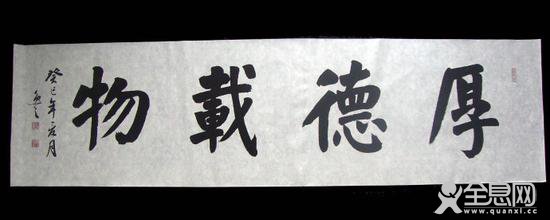 厚德載物
癸巳年元月
全息网
www.quanxi.cc